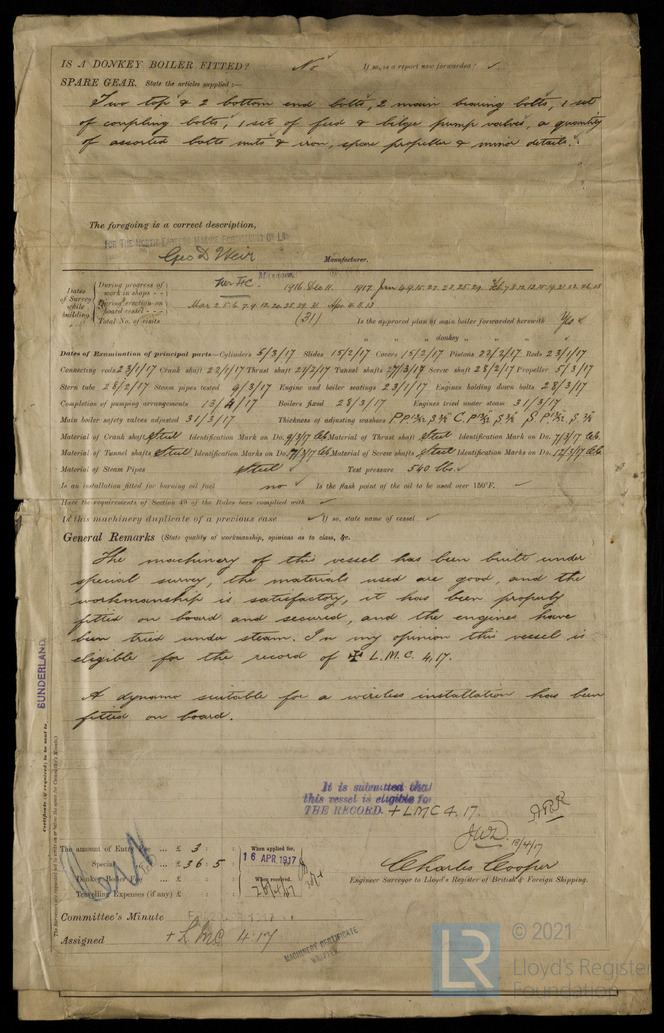 IS A DONKEY BOILER FITTED? No If so, is a report now forwarded? ✓
SPARE GEAR. State the articles supplied:—
Two top & 2 bottom end bolts, 2 main bearing bolts, 1 set
of coupling bolts, 1 set of feed & bilge pump valves, a quantity
of assorted bolts nuts & iron, spare propeller & minor details.
The foregoing is a correct description,
FOR THE NORTH EASTERN MARINE
Geo D Weir Manufacturer.
Dates of Survey while building
During progress of work in shops - - 1916 Dec 11. 1917. Jan 4.9.15.
During erection on board vessel - - - Mar 2.5.6.7.9.12.20.25.29.31 Apr. 4.5.13
Total No. of visits (31) Is the approved plan of main boiler forwarded herewith Yes ✓
" " " donkey " " "
Dates of Examination of principal parts—Cylinders 5/3/17 Slides 15/2/17 Covers 15/2/17 Pistons 22/2/17 Rods 23/1/17
Connecting rods 23/1/17 Crank shaft 22/1/17 Thrust shaft 21/2/17 Tunnel shafts 27/3/17 Screw shaft 28/2/17 Propeller 5/3/17
Stern tube 28/2/17 Steam pipes tested 9/3/17 Engine and boiler seatings 23/1/17 Engines holding down bolts 28/3/17
Completion of pumping arrangements 13/4/17 Boilers fixed 28/3/17 Engines tried under steam 31/3/17
Main boiler safety valves adjusted 31/3/17 Thickness of adjusting washers
Material of Crank shaft Steel Identification Mark on Do. 9/3/17 Material of Thrust shaft Steel Identification Mark on Do. 7/3/17
Material of Tunnel shafts Steel Identification Marks on Do. 7/3/17 Material of Screw shafts Steel Identification Marks on Do. 12/3/17
Material of Steam Pipes Steel ✓ Test pressure 540 lbs. ✓
Is an installation fitted for burning oil fuel no ✓ Is the flash point of the oil to be used over 150°F. ✓
Have the requirements of Section 49 of the Rules been complied with ✓
Is this machinery duplicate of a previous case ✓ If so, state name of vessel ✓
General Remarks (State quality of workmanship, opinions as to class, &c.
The machinery of this vessel has been built under
special survey, the materials used are good, and the
workmanship is satisfactory, it has been properly
fitted on board and secured, and the engines have
been tried under steam. In my opinion this vessel is
eligible for the record of ✠ L.M.C. 4.17.
A dynamo suitable for a wireless installation has been
fitted on board.
SUNDERLAND
Certificate (if required) to be sent to
It is submitted that
this vessel is eligible for
THE RECORD. + LMC 4.17.
JWD 18/4/17
The amount of Entry Fee ... £ 3 : : When applied for,
Special ... £ 36 : 5 : 16 APR 1917
Donkey Boiler Fee ... £ : : When received,
Travelling Expenses (if any) £ : :
Charles Cooper
Engineer Surveyor to Lloyd's Register of British & Foreign Shipping.
Committee's Minute
Assigned + LMC 4.17
MACHINERY CERTIFICATE
WRITTEN
© 2021
LR
Lloyd's Register
Foundation